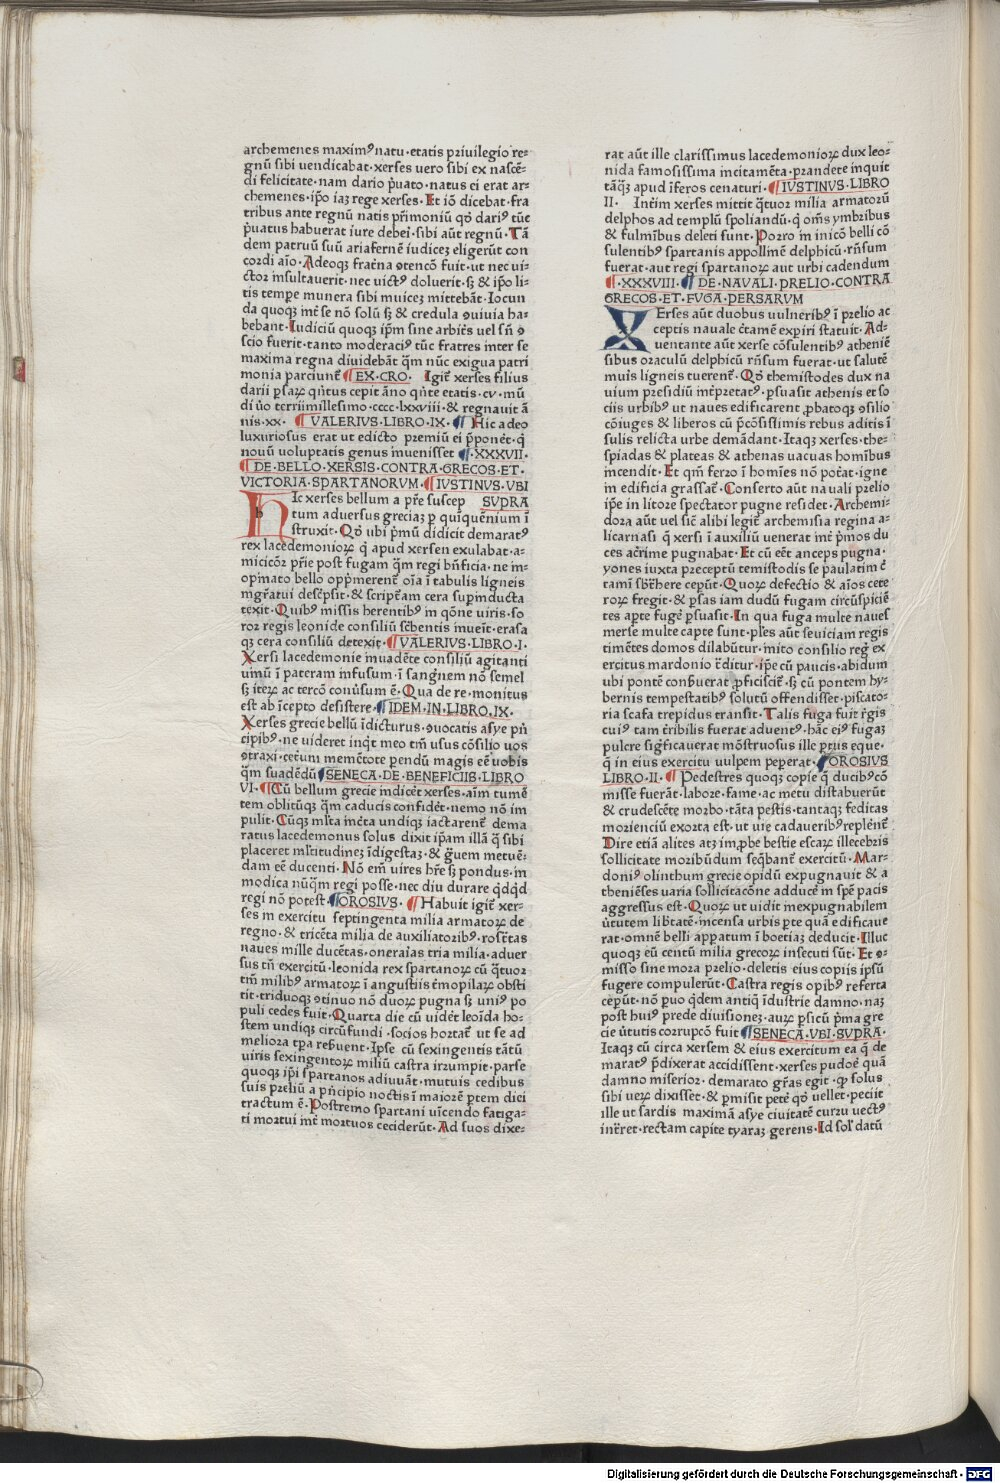 archemenes maximꝰ natu·etatis priuilegio re⸗
gnū sibi vendicabat·xerses uero sibi ex nascē⸗
di felicitate·nam dario p̄uato·natus ei erat ar⸗
chemenes·ip̄o iaꝫ rege xerses·Et iō dicebat·fra
tribus ante regnū natis pr̄imoniū qḋ dariꝰ tūc
p̄uatus habuerat iure debeī·sibi aūt regnū·Tā
dem patruū suū ariafernē iudiceꝫ eligerūt con
cordi aīo·Adeoqꝫ frat̄na ꝯtencō fuit·ut nec ui⸗
ctor insultauerit·nec uictꝰ doluerit·sꝫ & ip̄o li⸗
tis tempe munera sibi muiceꝫ mittebāt·Iocun
da quoqꝫ mt̄ se nō solū sꝫ & credula ꝯuiuia ha⸗
bebant·Iudiciū quoqꝫ ip̄m sine arbit̄s uel sn̄ ꝯ
scio fuerit·tanto moderaciꝰ tūc fratres inter se
maxima regna diuidebāt qm̄ nūc exigua patri
monia parciunt̄ ¶ EX·CRO· Igit̄ xerses filius
darii psaꝝ qn̄tus cepit āno qn̄te etatis·cv·mū
di ůo terriimillesimo·cccc·lxxviii·& regnauit ā
nis·xx· ¶ VALERIVS·LIBRO IX·¶ Hic adeo
luxuriosus erat ut edicto premiū ei p̄ponet̄·q̇
nouū uoluptatis genus inuenisset ¶·XXXVII·
¶ DE·BELLO·XERSIS·CONTRA·GRECOS·ET·
VICTORIA·SPARTANORVM·¶ IVSTINVS·VBI
HIc xerses bellum a pr̄e suscep SVPRA
tum aduersus greciaꝫ p quiquēnium ī
struxit·Qḋ ubi p̄mū didicit demaratꝰ
rex lacedemonioꝝ q̇ apud xersen exulabat·a⸗
miciсōr pr̄ie post fugam qm̄ regi bn̄ficia·ne in⸗
opinato bello opp̄merent̄ oīa ī tabulis ligneis
mgr̄atui desc̄psit·& script̄am cera sup̄inducta
texit·Quibꝰ missis herentibꝰ in qōne uiris·so
ror regis leonide consiliū sc̄bentis inueīt·erasa
qꝫ cera consiliū detexit·¶ VALERIVS·LIBRO·I·
Xersi lacedemonie inuadēte consiliū agitanti
uinū ī pateram infusum·ī sangn̄em nō semel
sꝫ iteꝝ ac tercō conūsum ē·Qua de re·monitus
est ab īcepto desistere·¶ IDEM·IN·LIBRO·IX·
Xerses grecie bellū īdicturus·ꝯuocatis asye pn̄
cipibꝰ·ne uideret inqt̄ meo tm̄ usus cōsilio uos
ꝯtraxi·cet̄um memētote pendū magis eē uobis
qm̄ suadēdū ¶ SENECA·DE·BENEFICIIS·LIBRO
VI·¶ Cū bellum grecie indicēt xerses·aīm tumē
tem oblitūqꝫ qm̄ caducis confidēt·nemo nō im
pulit·Cūqꝫ ml̄ta inc̄ta undiqꝫ iactarent̄ dema
ratus lacedemonus solus dixit ip̄am illā q̄ sibi
placeret ml̄titudineꝫ īdigestaꝫ·& ḡuem metuē⸗
dam eē ducenti·Nō em̄ uires hr̄e sꝫ pondus·in
modica nūqm̄ regi posse·nec diu durare qd̄qd
regi nō potest·¶ OROSIVS·¶ Habuit igit̄ xer⸗
ses in exercitu septinginta milia armatoꝝ de
regno·& tricēta milia de auxiliatoribꝰ·rosētas
naues mille ducētas·oneraias tria milia·aduer
sus tn̄ exercitū·leonida rex spartanoꝝ cū q̄tuor
tm̄ milibꝰ armatoꝝ ī angustiis t̄mopilaꝝ obsti
tit·triduoqꝫ ꝯtinuo nō duoꝝ pugna sꝫ uniꝰ po
puli cedes fuit·Quarta die cū uidēt leoīda ho⸗
stem undiqꝫ circūfundi·socios hortat̄ ut se ad
meliora tp̄a reƀuent·Ipse cū sexingentis tātū
uiris sexingentoꝝ miliū castra irrumpit·parse
quoqꝫ ip̄i spartanos adiuuāt·mutuis cedibus
suis preliū a pn̄cipio noctis ī maiorē p̄tem diei
tractum ē·Postremo spartani uīcendo fatiga⸗
ti mortui int̄ mortuos ceciderūt·Ad suos dixe⸗
rat aūt ille clarissimus lacedemonioꝝ dux leo⸗
nida famosissima incitamēta·prandete inquit
tāq̄ꝫ apud īferos cenaturi·¶ IVSTINVS·LIBRO
II· Int̄im xerses mittit q̄tuor milia armatorū
delphos ad templū spoliandū·q̇ om̄s ymbribus
& fulminꝰ deleti sunt·Porro in inicō belli cō
sulentibꝰ spartanis appollinē delphicū·rn̄sum
fuerat·aut regi spartanoꝝ aut urbi cadendum
¶·XXXVIII·¶ DE·NAVALI·PRELIO·CONTRA
GRECOS·ET·FVGA·PERSARVM
XErses aūt duobus uulneribꝰ ī prelio ac
ceptis nauale c̄tamē expiri statuit·Ad⸗
uentante aūt xerse cōsulentibꝰ atheniē
sibus oraculū delphicū rn̄sum fuerat·ut salutē
muis ligneis tuerent̄·Qḋ themistodes dux na
uium presidiū int̄pretatꝰ·psuasit athenis et so
ciis urbibꝰ ut naues edificarent·ꝓbatoqꝫ ꝯsilio
cōiuges & liberos cū p̄cōsissimis rebus aditis ī
sulis relicta urbe demādant·Itaqꝫ xerses·the⸗
spiadas & plateas & athenas uacuas hominibus
incendit·Et qm̄ ferzo ī homīes nō pot̄at·igne
in edificia grassat̄·Conserto aūt nauali prelio
ip̄e in litore spectator pugne residet·Archemi⸗
dora aūt uel sic̄ alibi legit̄ archemisia regina a⸗
licarnasi q̄ xersi ī auxiliū uenerat int̄ p̄mos du
ces ac̄rime pugnabat·Et cū eēt anceps pugna·
yones iuxta preceptū temistodis se paulatim c̄
tamī sb̄r̄here cepūt·Quoꝝ defectio & aīos cete
roꝝ fregit·& psas iam dudū fugam circūspiciē
tes apte fugē psuasit·In qua fuga multe naues
merse multe capte sunt·pl̄es aūt seuiciam regis
timētes domos dilabūtur·mito consilio reg̃ ex
ercitus mardonio t̄ditur·ip̄e cū paucis·abidum
ubi pontē conƀuerat ꝓficiscit̄·sꝫ cū pontem hy⸗
bernis tempestatibꝰ solutū offendisset·piscato⸗
ria scafa trepidus transit·Talis fuga fuit r̄gis
cuiꝰ tam t̄ribilis fuerat aduentꝰ·hāc eiꝰ fugaꝫ
pulcre sigficauerat mōstruosus ille ptus eque·
q̄ in eius exercitu uulpem peperat·¶ OROSIVS
LIBRO·II·¶ Pedestres quoqꝫ copie q̄ ducibꝰ cō
misse fuerāt·labore·fame·ac metu distabuerūt
& crudescēte morbo·tāta pestis·tantaqꝫ feditas
morienciū exorta est·ut uie cadaueribꝰ replent̄
Dire etiā alites atꝫ imꝓbe bestie escaꝝ illecebris
sollicitate moribūdum seqbant̄ exercitū·Mar⸗
doniꝰ olinthum grecie opidū expugnauit & a
theniēses uaria sollicitacōne adduce in spē pacis
aggressus est·Quoꝝ ut uidit inexpugnabilem
ůtutem lib̄tatē·incensa urbis pte quā edificaue
rat·omnē belli appatum ī boetiaꝫ deducit·Illuc
quoqꝫ eū centū milia grecoꝝ insecuti sūt·Et ꝯ⸗
misso sine mora prelio·deletis eius copiis ipsū
fugere compulerūt·Castra regis opibꝰ referta
cepūt·nō puo q̇dem antiq̄ īdustrie damno·naꝫ
post huiꝰ prede diuisioneꝫ·auꝝ psicū p̄ma gre
cie ůtutis corrupcō fuit ¶ SENECA·VBI·SVPRA·
Itaqꝫ cū circa xersem & eius exercitum ea q̄ de
maratꝰ p̄dixerat accidissent·xerses pudoē quā
damno miserior·demarato gr̄as egit·ꝙ solus
sibi ueꝝ dixisset·& pmisit pet̄e qḋ uellet·peciit
ille ut sardis maximā asye ciuitatē curzu uectꝰ
int̄ret·rectam capite tyaraꝫ gerens·Id sol̄ datū
Digitalisierung gefördert durch die Deutsche Forschungsgemeinschaft - DFG